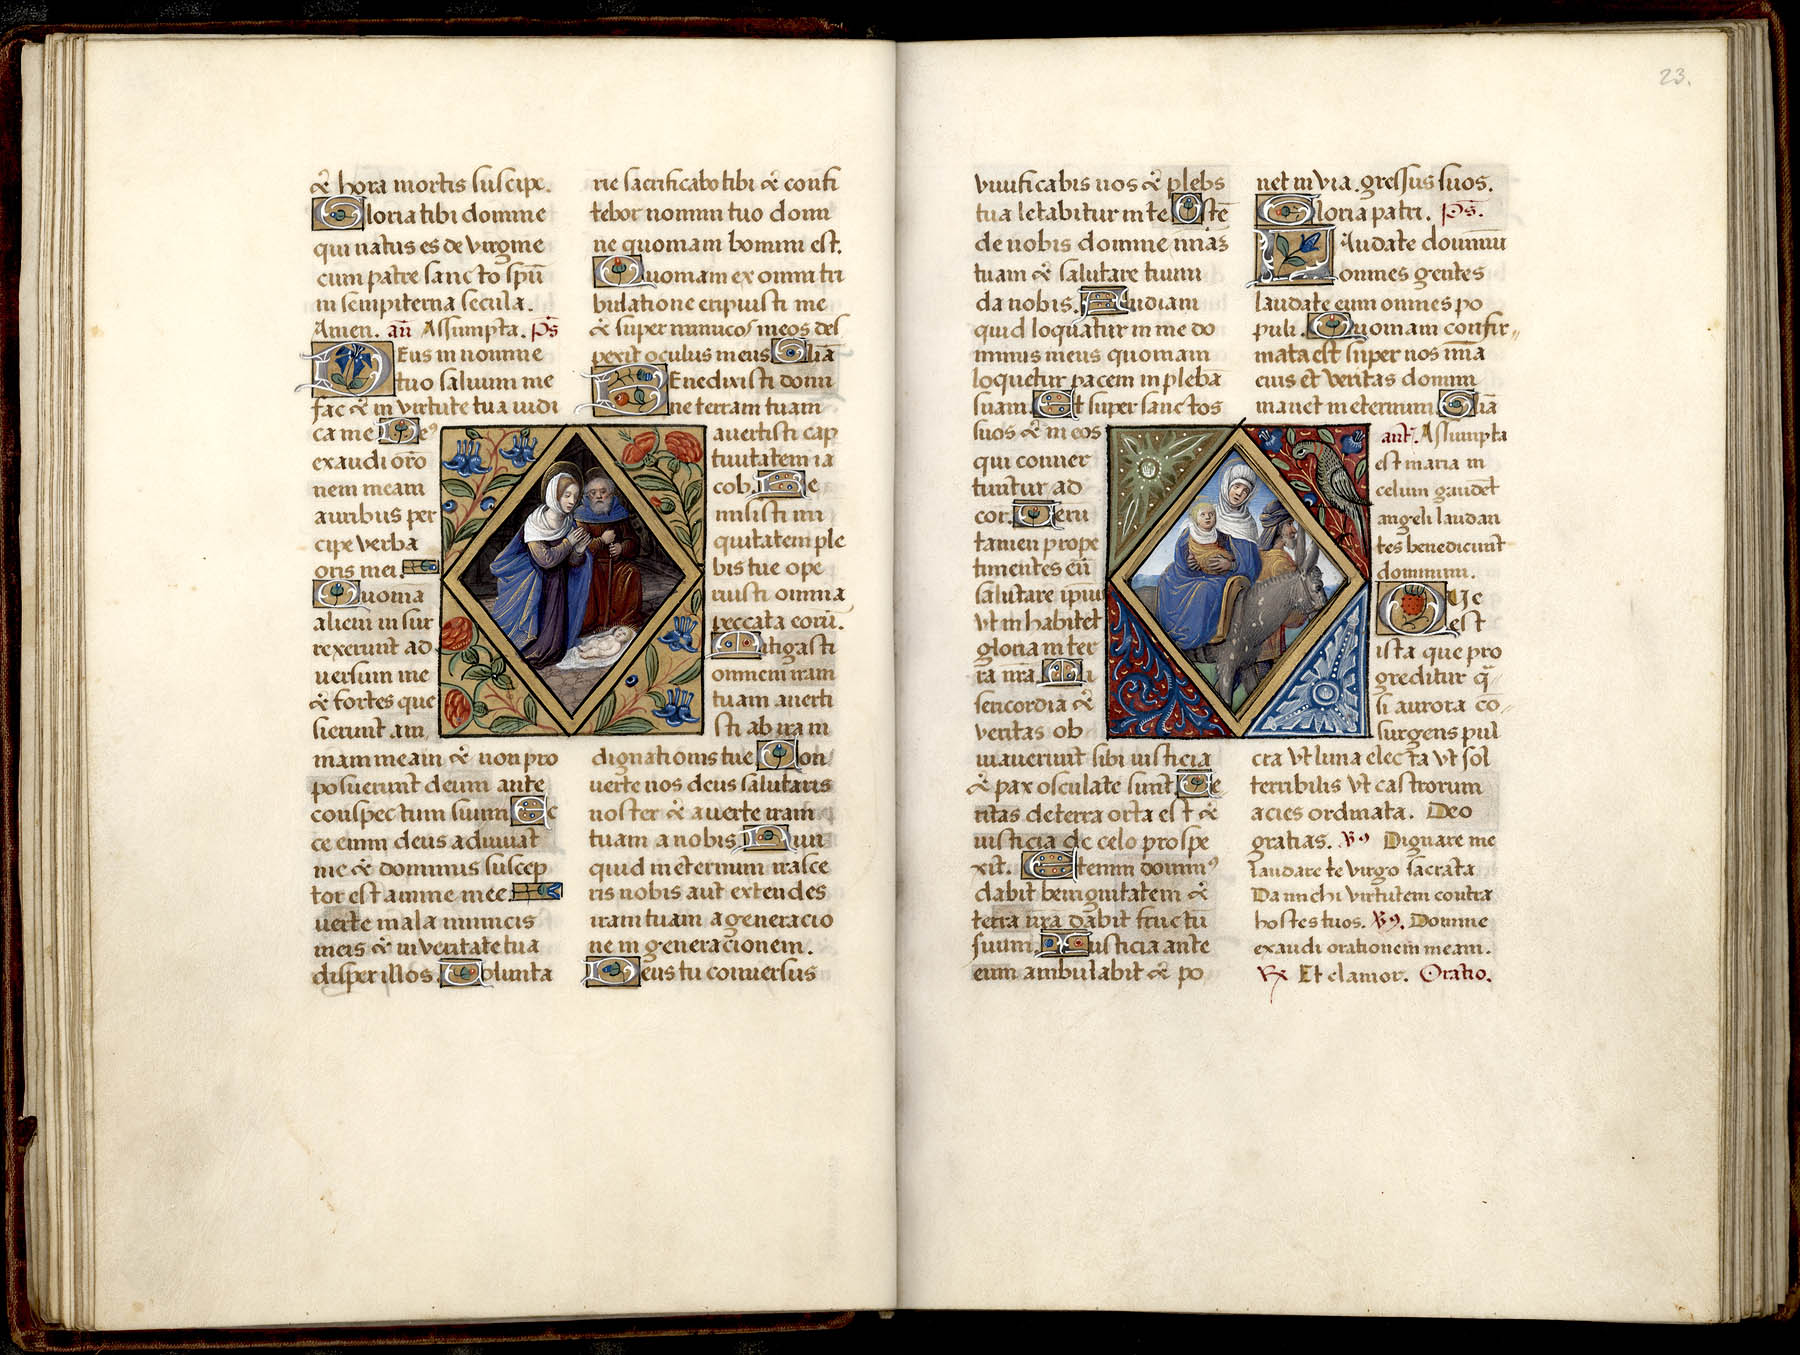 & hora mortis suscipe.
Gloria tibi domine
qui natus es de virgine
cum patre sancto spũ
in sempiterna secula.
Amen. añ Assumpta. p̄s
Deus in nomine
tuo saluum me
fac & in virtute tua iudi
ca me. De9
exaudi orõ
nem meam
auribus per
cipe verba
oris mei.
Quonia
alieni insur
rexerunt ad
uersum me
& fortes que
sierunt am
mam meam & non pro
posuerunt deum ante
conspectum suum Ec
ce enim deus adiuuat
me & dominus suscep
tor est anime mee
uerte mala inimicis
meis & in veritate tua
disperillos. Volunta
rie sacrificabo tibi & confi
tebor nomini tuo domi
ne quoniam bonum est.
Quoniam ex omni tri
bulatione eripuisti me
& super inimicos meos des
pexit oculus meus. Gliã
Benedixisti domi
ne terram tuam
auertisti cap
tiuitatem ia
cob. Re
misisti ini
quitatem ple
bis tue ope
ruisti omnia
peccata corũ.
Mitigasti
omnem iram
tuam auerti
sti ab ira in
dignationis tue Con
uerte nos deus salutaris
noster & auerte iram
tuam a nobis Nun
quid in eternum irasce
ris nobis aut extendes
iram tuam a generacio
ne in generacionem.
Deus tu conuersus
23.
viuificabis nos & plebs
tua letabitur in te Oste
de nobis domine miãs
tuam & salutare tuum
da nobis. Audiam
quid loquatur in me do
minus meus quoniam
loquetur pacem in plebã
suam Et super sanctos
suos & in eos
qui conuer
tuntur ad
cor. Veru
tamen prope
timentes eũ
salutare ipiu
vt inhabitet
gloria in ter
ra nrã. Mi
sericordia &
veritas ob
uiauerunt sibi iusticia
& pax osculate sunt. Ve
ritas de terra orta est &
iusticia de celo prospe
xit. Etenim domin9
dabit benignitatem &
terra nrã dabit fructũ
suum. Iusticia ante
eum ambulabit & po
net in via. gressus suos.
Gloria patri. p̄s.
Laudate dominũ
omnes gentes
laudate eum omnes po
puli. Quoniam confir
mata est super nos mia
eius et veritas domini
manet in eternum Gliã
ant. Assumpta
est maria in
celum gaudet
angeli laudan
tes benedicunt
dominum.
Que
est
ista que pro
greditur q̃
si aurora cõ
surgens pul
cra vt luna electa vt sol
terribilis vt castrorum
acies ordinata. Deo
gratias. V9 Dignare me
laudare te virgo sacrata
Da michi virtutem contra
hostes tuos. V9. Domine
exaudi orationem meam.
Rx Et clamor. Oratio.